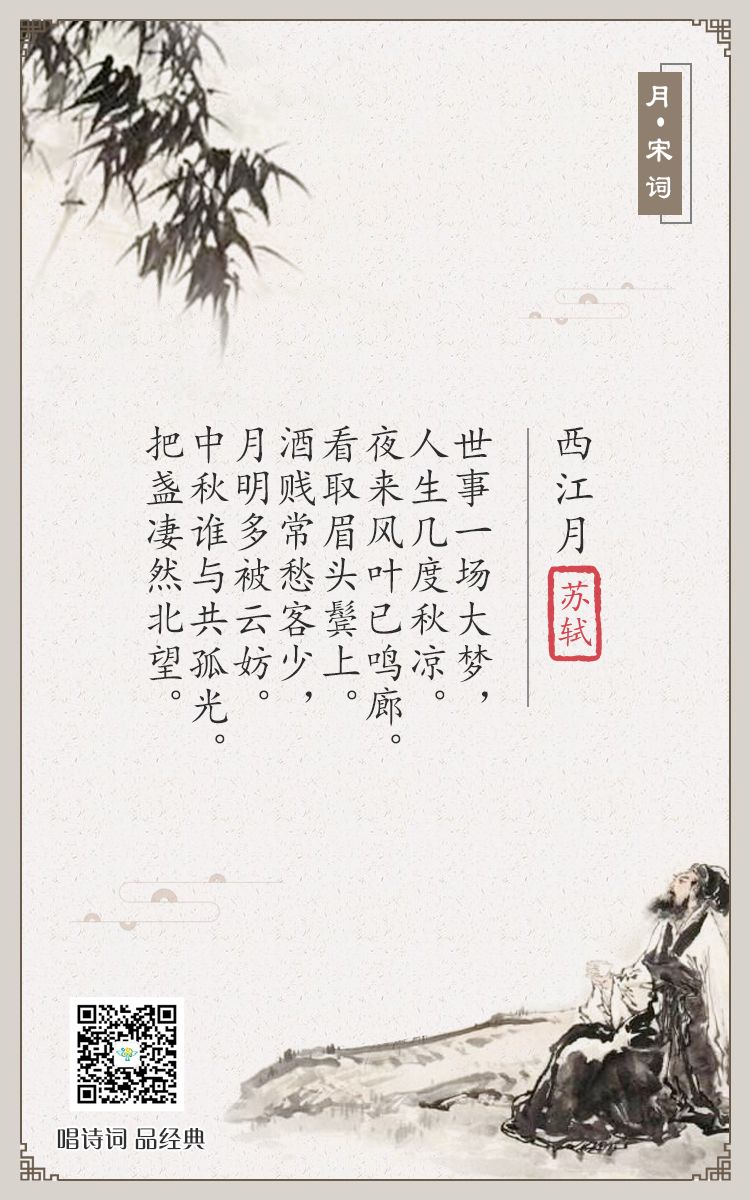 月·宋词
西江月
苏轼
世事一场大梦，
人生几度秋凉。
夜来风叶已鸣廊。
看取眉头鬓上。
酒贱常愁客少，
月明多被云妨。
中秋谁与共孤光。
把盏凄然北望。
唱诗词 品经典